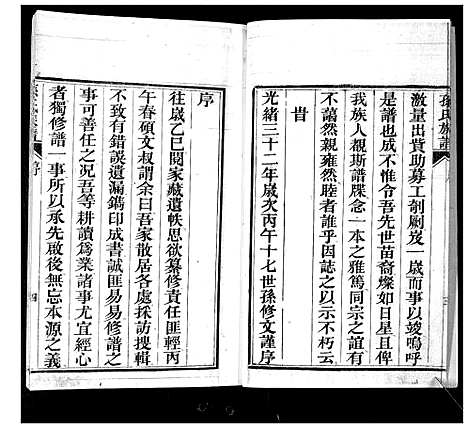 孫氏族譜
激量出貲助募工剞劂歲一歲而事以竣嗚呼
是譜也成不惟令吾先世苗裔燦如日星且俾
我族人一親斯譜牒念一本之雅篤同宗之誼有
不藹然親雍然睦者誰乎因誌之以示不朽云
昔
光緒三十二年歲次丙午十七世孫修文謹序
序
往歲乙巳閱家藏遺帙思欲纂修責任匪輕丙
午春碩文叔謂余曰吾家散居各處採訪搜輯
不致有錯誤遺漏鐫印成書誠匪易易修譜之
事可善任之況吾等耕讀爲業諸事尤宜經心
者獨修譜一事所以承先啟後無忘本源之義
序
四